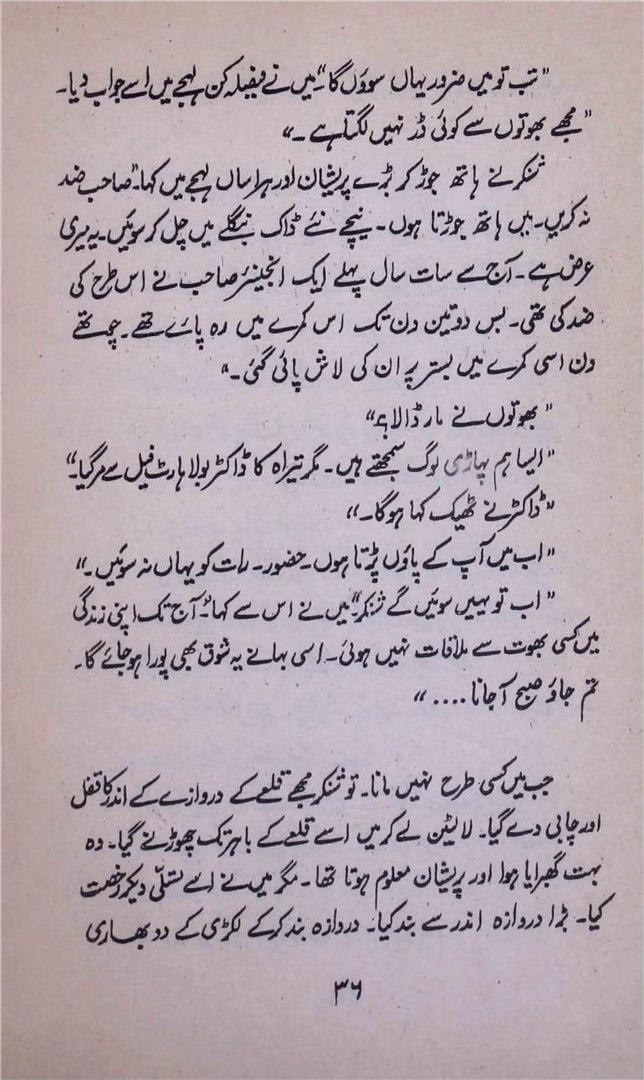 "تب تو میں ضرور یہاں سوؤں گا" میں نے فیصلہ کن لہجے میں اسے جواب دیا۔
"مجھے بھوتوں سے کوئی ڈر نہیں لگتا ہے۔"
شنکر نے ہاتھ جوڑ کر بڑے پریشان اور ہراساں لہجے میں کہا۔ "صاحب ضد
نہ کریں۔ میں ہاتھ جوڑتا ہوں۔ نیچے نئے ڈاک بنگلے میں چل کر سوئیں۔ یہ میری
عرض ہے۔ آج سے سات سال پہلے ایک انجینئر صاحب نے اس طرح کی
ضد کی تھی۔ بس دو تین دن تک اس کمرے میں رہ پائے تھے۔ چوتھے
دن اسی کمرے میں بستر پر ان کی لاش پائی گئی۔"
"بھوتوں نے مار ڈالا؟"
"ایسا ہم پہاڑی لوگ سمجھتے ہیں۔ مگر تیراہ کا ڈاکٹر بولا ہارٹ فیل سے مر گیا۔"
"ڈاکٹر نے ٹھیک کہا ہوگا۔"
"اب میں آپ کے پاؤں پڑتا ہوں۔ حضور۔ رات کو یہاں نہ سوئیں۔"
"اب تو یہیں سوئیں گے شنکر" میں نے اس سے کہا۔ "آج تک اپنی زندگی
میں کسی بھوت سے ملاقات نہیں ہوئی۔ اسی بہانے یہ شوق بھی پورا ہو جائے گا۔
تم جاؤ صبح آ جانا...."
جب میں کسی طرح نہیں مانا۔ تو شنکر مجھے قلعے کے دروازے کے اندر کا قفل
اور چابی دے گیا۔ لالٹین لے کر میں اسے قلعے کے باہر تک چھوڑنے گیا۔ وہ
بہت گھبرایا ہوا اور پریشان معلوم ہوتا تھا۔ مگر میں نے اسے تسلّی دیکر رخصت
کیا۔ بڑا دروازہ اندر سے بند کیا۔ دروازہ بند کر کے لکڑی کے دو بھاری
۳۶